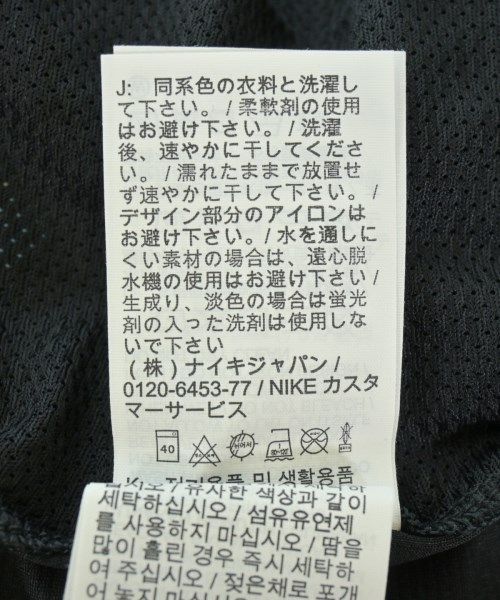 J: 同系色の衣料と洗濯し
て下さい。/ 柔軟剤の使用
はお避け下さい。/ 洗濯
後、速やかに干してくださ
い。/ 濡れたままで放置せ
ず速やかに干して下さい。/
デザイン部分のアイロンは
お避け下さい。/ 水を通しに
くい素材の場合は、遠心脱
水機の使用はお避け下さい /
生成り、淡色の場合は蛍光
剤の入った洗剤は使用しな
いで下さい
(株) ナイキジャパン /
0120-6453-77 / NIKE カスタ
マーサービス
40
유사한 색상과 같이
세탁하십시오 / 섬유유연제
를 사용하지 마십시오 / 땀을
많이 흘린 경우 즉시 세탁하
여 주십시오 / 젖은채로 포개
어 놓지 마십시오